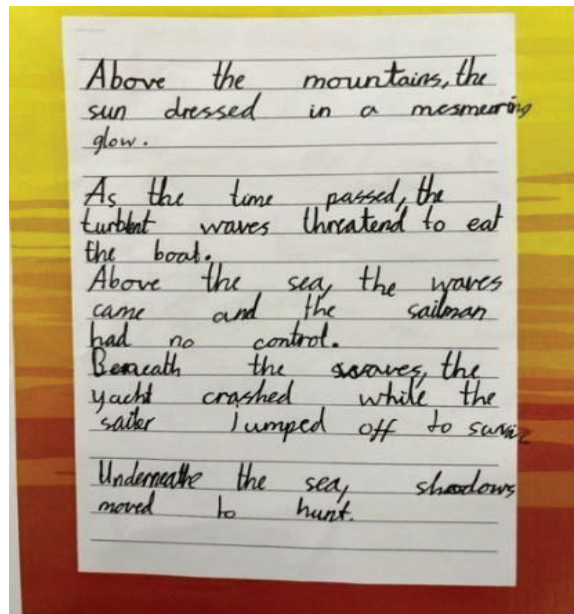 Above the mountains, the
sun dressed in a mesmering
glow.
As the time passed, the
turblent waves threatend to eat
the boat.
Above the sea, the waves
came and the sailman
had no control.
Beneath the waves, the
yacht crashed while the
sailer Jumped off to
Underneath the sea, shadows
moved to hunt.